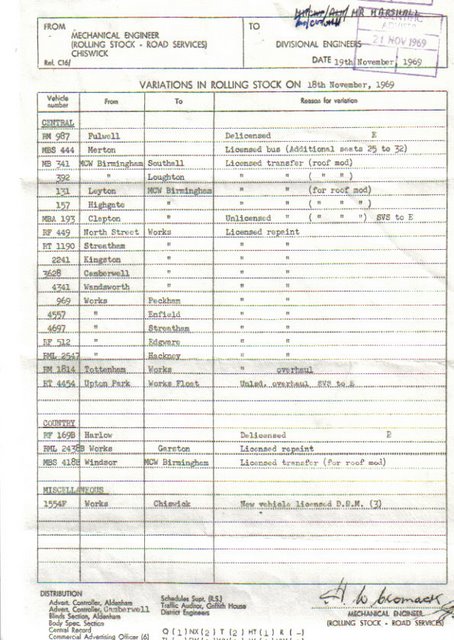 MR MARSHALL
FROM
MECHANICAL ENGINEER
(ROLLING STOCK - ROAD SERVICES)
CHISWICK
Ref. C16/
TO
DIVISIONAL ENGINEERS
21 NOV 1969
DATE 19th November, 1969
VARIATIONS IN ROLLING STOCK ON 18th November, 1969
Vehicle number From To Reason for variation
CENTRAL
RM 987 Fulwell Delicensed E
MBS 444 Merton Licensed bus (Additional seats 25 to 32)
MB 341 MCW Birmingham Southall Licensed transfer (roof mod)
392 " Loughton " " ( " " )
131 Leyton MCW Birmingham " " (for roof mod)
157 Highgate " " " ( " " " )
MBA 193 Clapton " Unlicensed " ( " " " ) SVS to E
RF 449 North Street Works Licensed repaint
RT 1190 Streatham " " "
2241 Kingston " " "
3628 Camberwell " " "
4341 Wandsworth " " "
969 Works Peckham " "
4557 " Enfield " "
4697 " Streatham " "
RF 512 " Edgware " "
RML 2547 " Hackney " "
RM 1814 Tottenham Works " overhaul
RT 4454 Upton Park Works Float Unlsd. overhaul SVS to E
COUNTRY
RF 169B Harlow Delicensed E
RML 2438B Works Garston Licensed repaint
MBS 418B Windsor MCW Birmingham Licensed transfer (for roof mod)
MISCELLANEOUS
1554F Works Chiswick New vehicle licensed D.S.M. (3)
DISTRIBUTION
Advert. Controller, Aldenham
Advert. Controller, Camberwell
Blinds Section, Aldenham
Body Spec. Section
Central Record
Commercial Advertising Officer (6)
Schedules Supt. (R.S.)
Traffic Auditor, Griffith House
District Engineers
Q (1) NX (2) T (2) HT (1) R (-)
MECHANICAL ENGINEER
(ROLLING STOCK - ROAD SERVICES)